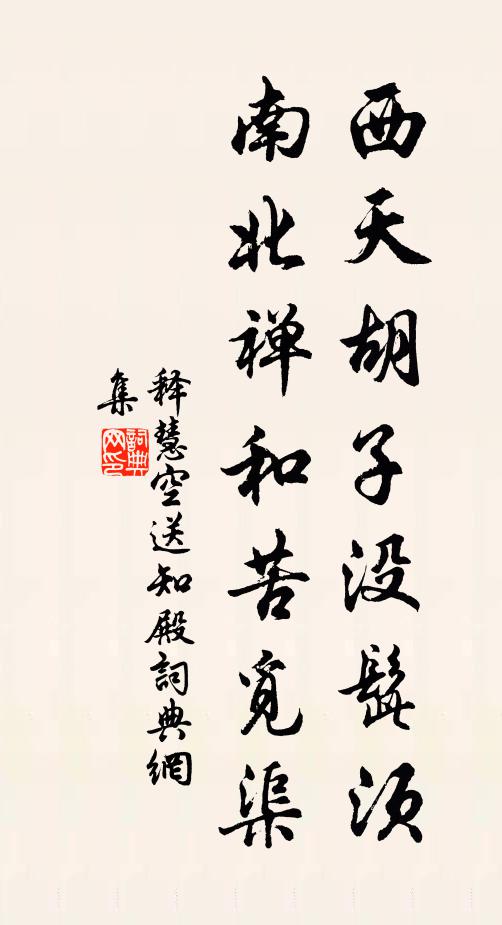 西天胡子没髭须
南北禅和苦觅渠
释慧空送知殿詞典網
集
詞典网印